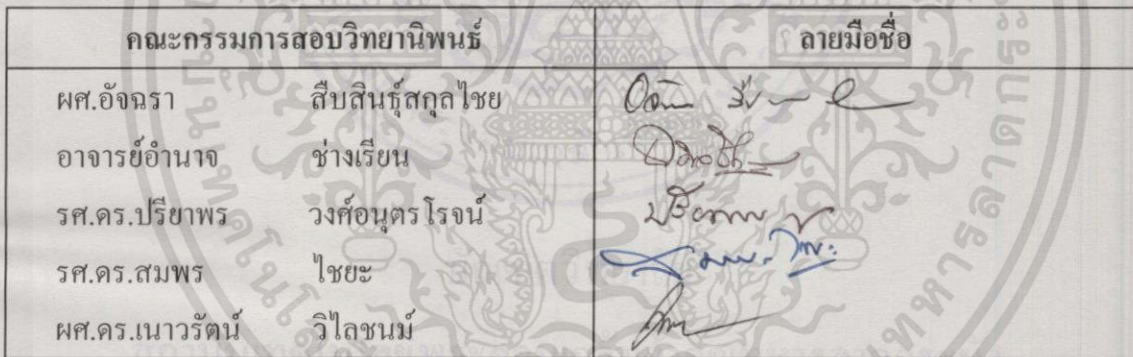 คณะกรรมการสอบวิทยานิพนธ์ ลายมือชื่อ
ผศ.อัจฉรา สืบสินธุ์สกุลไชย
อาจารย์อำนาจ ช่างเรียน
รศ.ดร.ปรียาพร วงศ์อนุตรโรจน์
รศ.ดร.สมพร ไชยะ
ผศ.ดร.เนาวรัตน์ วิไลชนม์